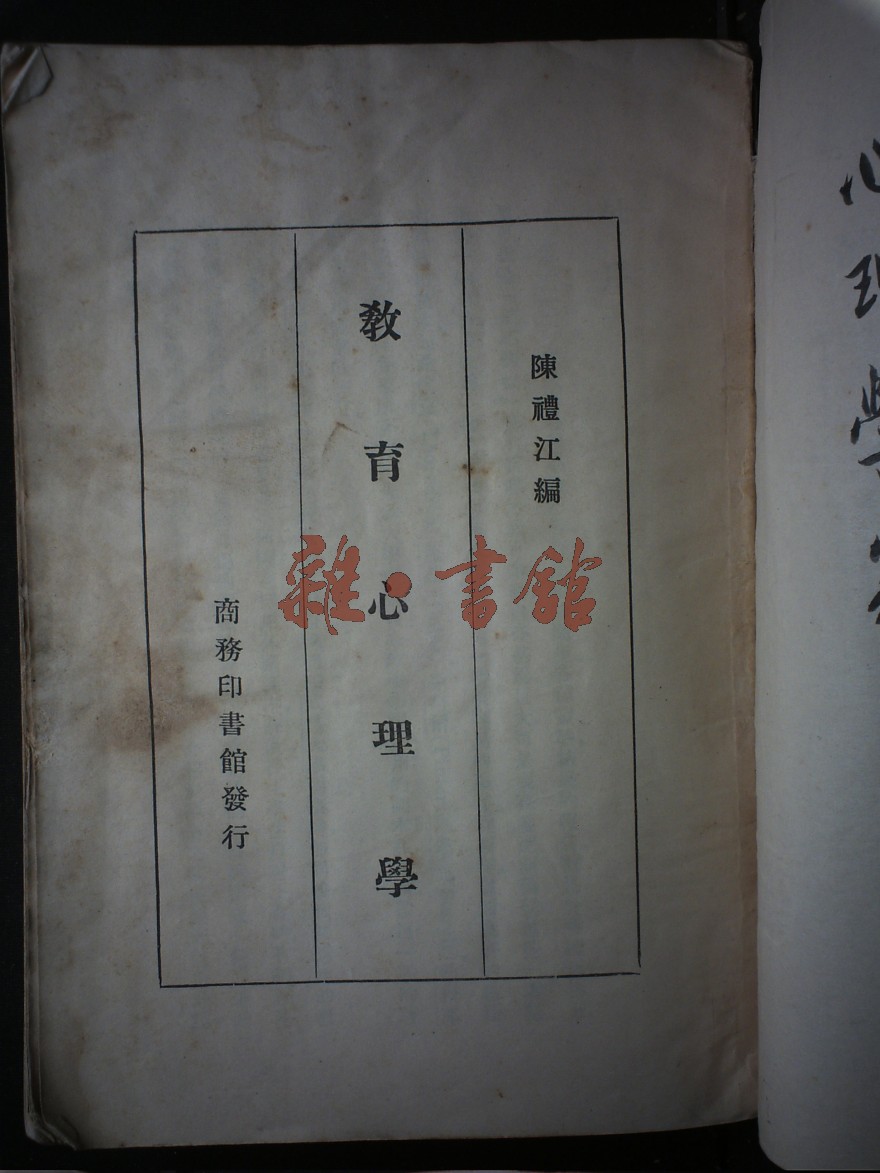 陳禮江編
教育心理學
商務印書館發行
雜·書館
心理學